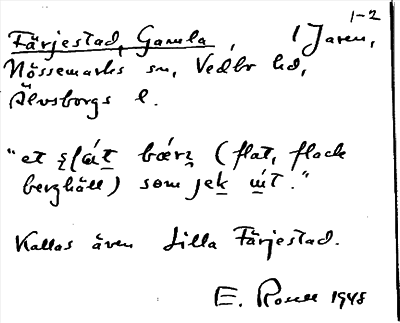 1-2
Färjestad, Gamla, i Jaren,
Nössemarks sn, Vedbo hd,
Älvsborgs l.
"et (flat, flack
berghäll) som
Kallas även Lilla Färjestad.
E. 1948